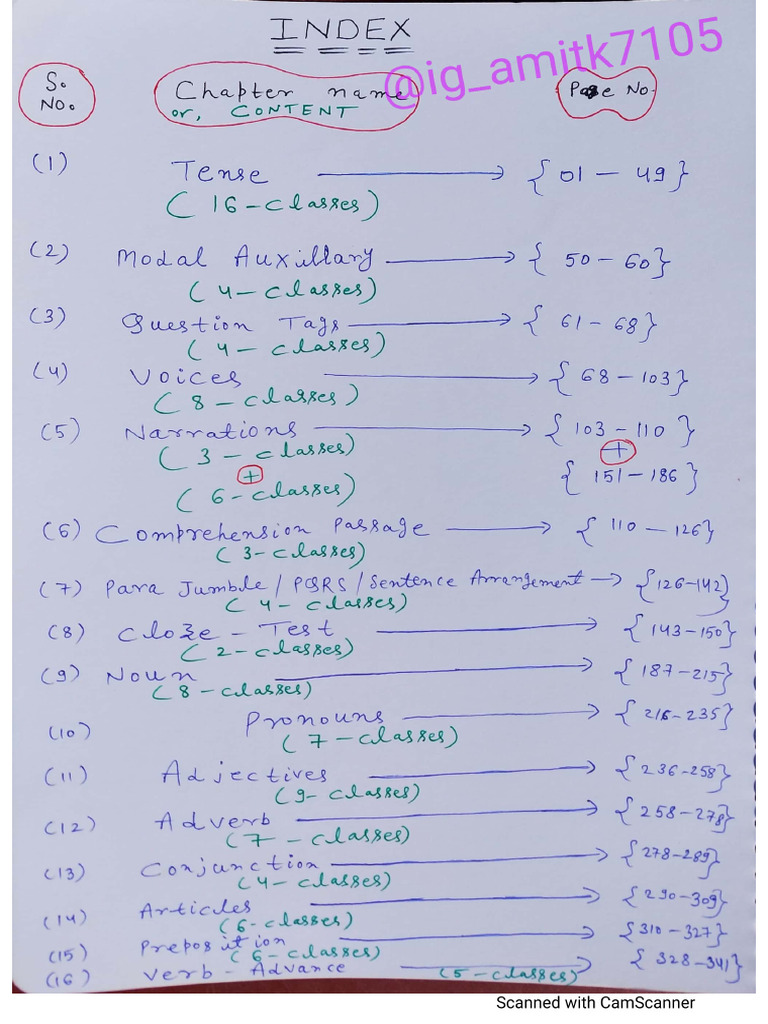 INDEX
@ig_amitk7105
S. NO.
Chapter name or, CONTENT
Page No.
(1) Tense {01 – 49}
(16-classes)
(2) Modal Auxillary {50 – 60}
(4-classes)
(3) Question Tags {61 – 68}
(4-classes)
(4) Voices {68 – 103}
(8-classes)
(5) Narrations {103 – 110}
(3-classes) +
+ {151 – 186}
(6-classes)
(6) Comprehension Passage {110 – 126}
(3-classes)
(7) Para Jumble / PQRS / Sentence Arrangement {126-142}
(4-classes)
(8) Cloze-Test {143-150}
(2-classes)
(9) Noun {187-215}
(8-classes)
(10) Pronouns {216-235}
(7-classes)
(11) Adjectives {236-258}
(9-classes)
(12) Adverb {258-278}
(7-classes)
(13) Conjunction {278-289}
(4-classes)
(14) Articles {290-309}
(6-classes)
(15) Preposition {310-327}
(6-classes)
(16) Verb-Advance (5-classes) {328-341}
Scanned with CamScanner